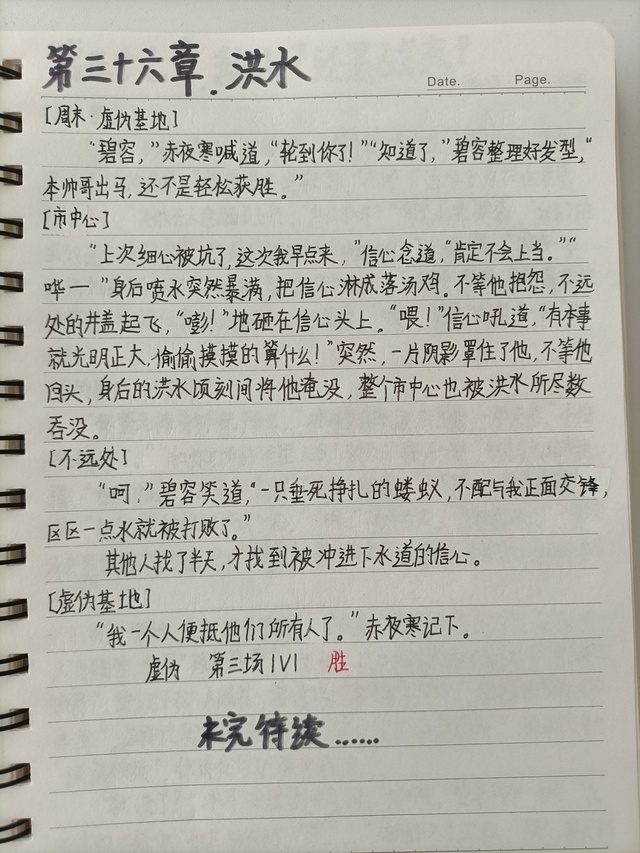 第三十六章.洪水
Date. Page.
[周末·虚伪基地]
“碧容，”赤夜寒喊道，“轮到你了！”“知道了，”碧容整理好发型，“
本帅哥出马，还不是轻松获胜。”
[市中心]
“上次细心被坑了，这次我早点来，”信心念道，“肯定不会上当。”“
哗一”身后喷水突然暴满，把信心淋成落汤鸡。不等他抱怨，不远
处的井盖起飞，“嘭！”地砸在信心头上。“喂！”信心吼道，“有本事
就光明正大，偷偷摸摸的算什么！”突然，一片阴影罩住了他，不等他
回头，身后的洪水顷刻间将他淹没，整个市中心也被洪水所尽数
吞没。
[不远处]
“呵，”碧容笑道，“一只垂死挣扎的蝼蚁，不配与我正面交锋，
区区一点水就被打败了。”
其他人找了半天，才找到被冲进下水道的信心。
[虚伪基地]
“我一个人便抵他们所有人了。”赤夜寒记下。
虚伪 第三场1V1 胜
未完待续……